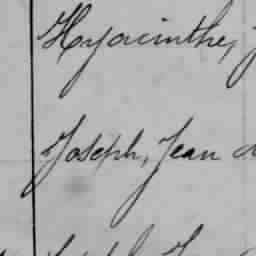 Hyacinthe,
Joseph, Jean